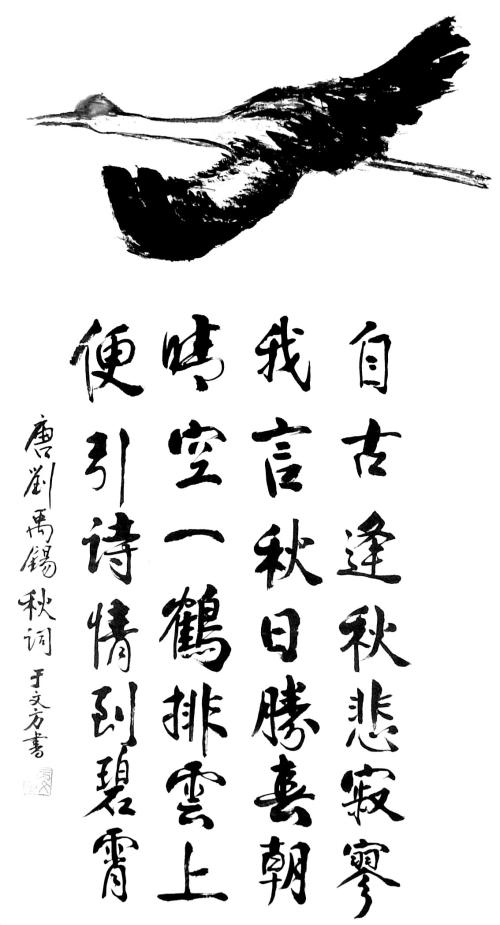 自古逢秋悲寂寥
我言秋日勝春朝
晴空一鶴排雲上
便引诗情到碧霄
唐劉禹錫秋词于文方書